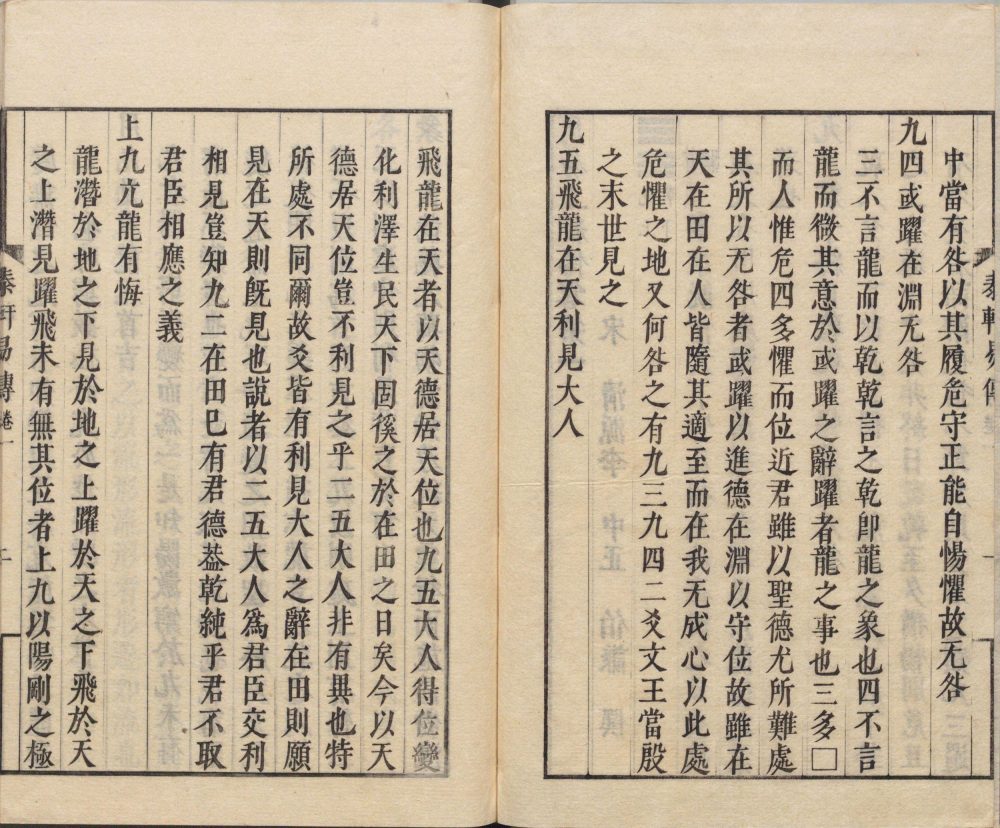 中當有咎以其履危守正能自惕懼故无咎
九四或躍在淵无咎
三不言龍而以乾乾言之乾卽龍之象也四不言
龍而微其意於或躍之辭躍者龍之事也三多□
而人惟危四多懼而位近君雖以聖德尤所難處
其所以无咎者或躍以進德在淵以守位故雖在
天在田在人皆隨其適至而在我无成心以此處
危懼之地又何咎之有九三九四二爻文王當殷
之末世見之
九五飛龍在天利見大人
飛龍在天者以天德居天位也九五大人得位變
化利澤生民天下固徯之於在田之日矣今以天
德居天位豈不利見之乎二五大人非有異也特
所處不同爾故爻皆有利見大人之辭在田則願
見在天則旣見也說者以二五大人爲君臣交利
相見豈知九二在田已有君德葢乾純乎君不取
君臣相應之義
上九亢龍有悔
龍潛於地之下見於地之上躍於天之下飛於天
之上潛見躍飛未有無其位者上九以陽剛之極
泰軒易傳 卷一